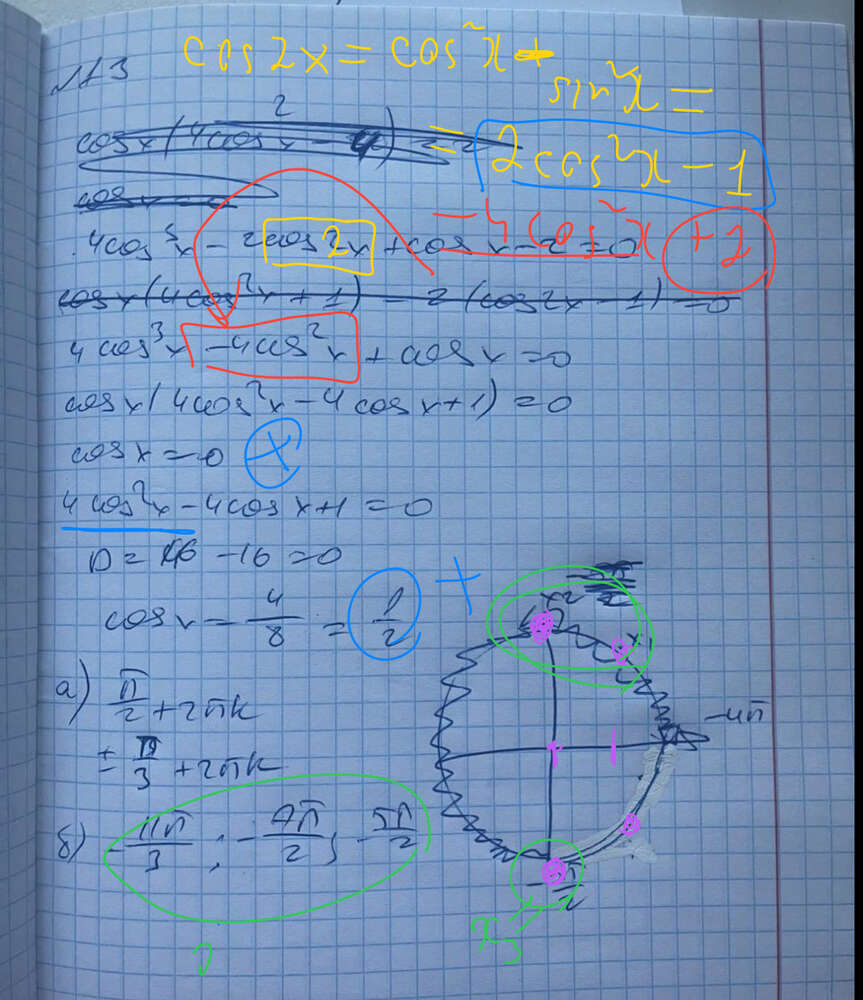 №13
cos2x = cos²x +
sin²x =
= 2cos²x - 1
4cos³x - 2cos2x + cosx - 2 = 0
- 4cos²x + 2
cosx(4cos²x + 1) - 2(cos2x - 1) = 0
4cos³x - 4cos²x + cosx = 0
cosx(4cos²x - 4cosx + 1) = 0
cosx = 0 +
4cos²x - 4cosx + 1 = 0
D = 16 - 16 = 0
cosx = 4/8 = 1/2 +
а) π/2 + 2πk
± π/3 + 2πk
-4π
б) -11π/3 ; -7π/2 ; -5π/2
x₃